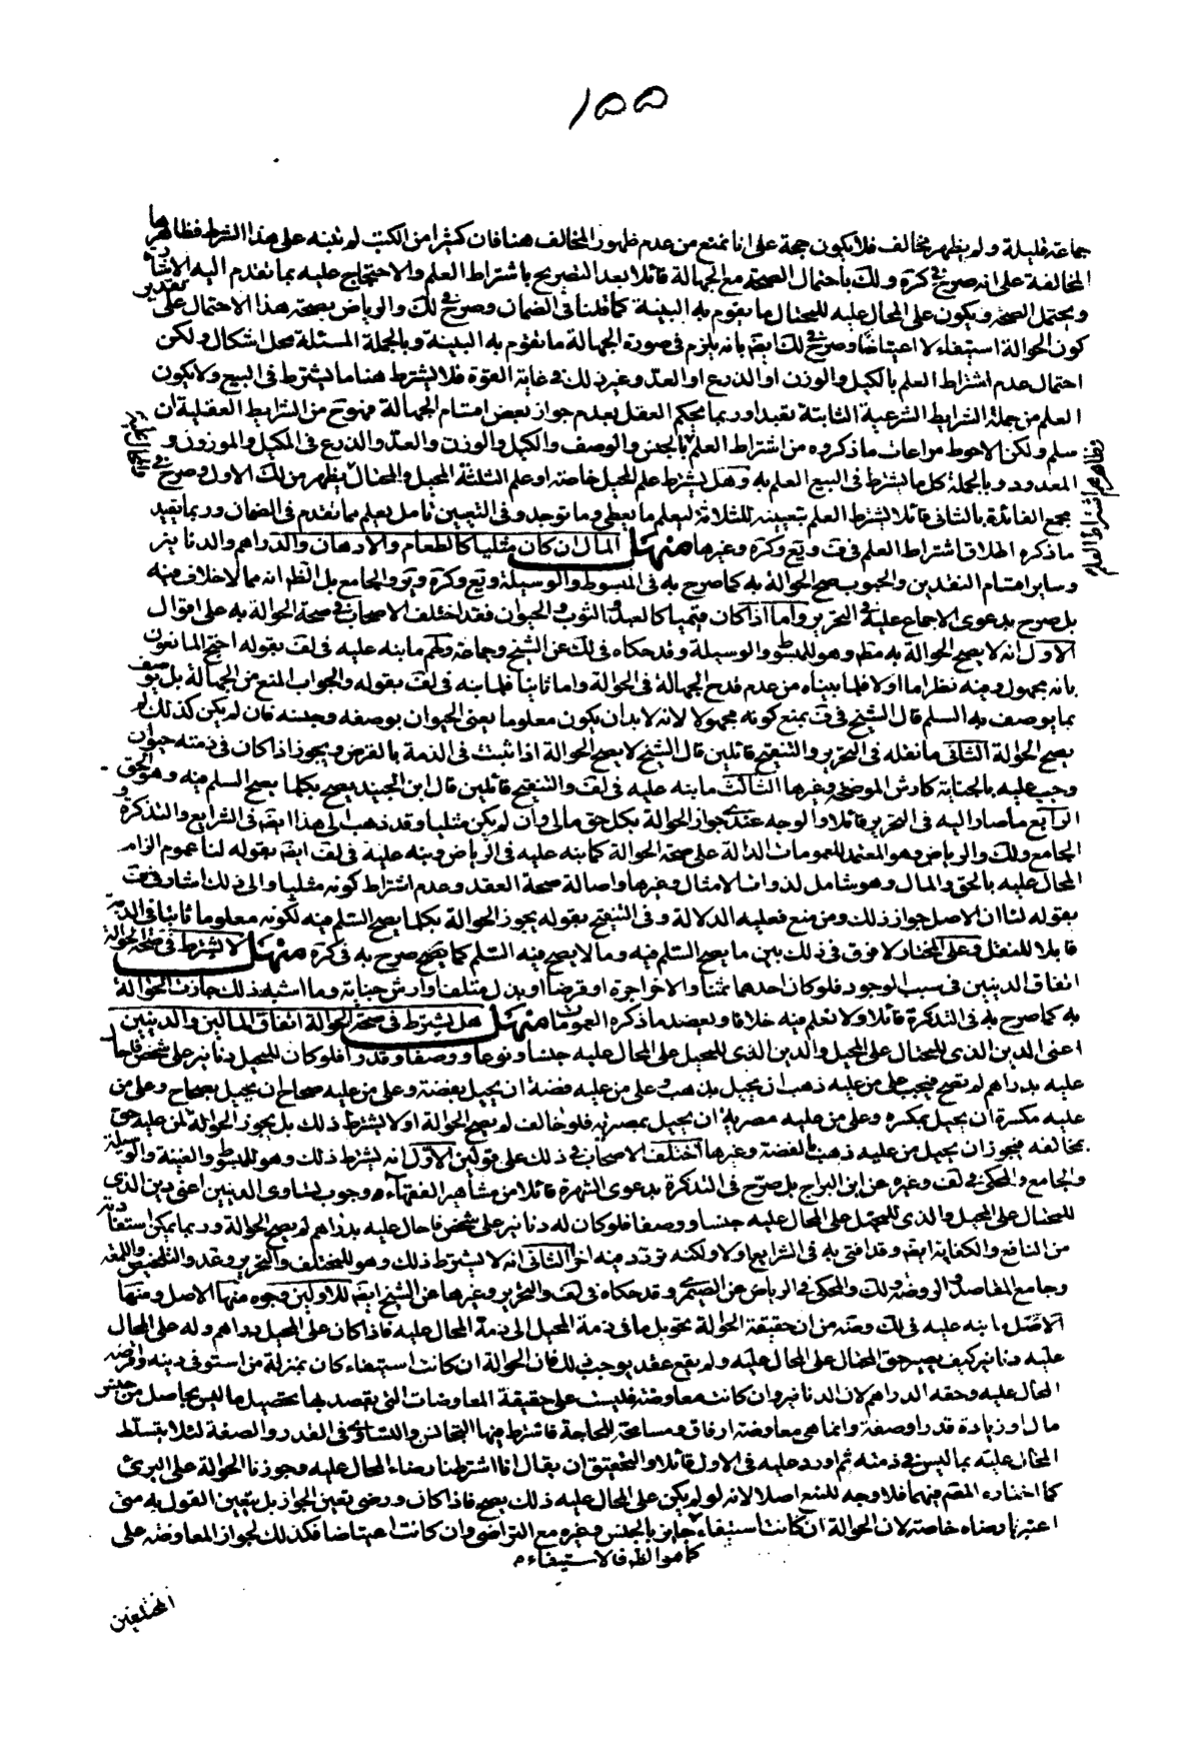 ١٥٥
جماعة قليلة ولم يظهر مخالف فلا يكون حجة على انا نمنع من عدم ظهور المخالف هنا فان كثيرا من الكتب لم ينبه على هذا الشرط فظاهرها
المخالفة على انه صرح في كرة ولك باحتمال الصحة مع الجهالة قائلا بعد التصريح باشتراط العلم والاحتجاج عليه بما تقدم اليه الاشارة
ويحتمل الصحة ويكون على المحال عليه للمحتال ما يقوم به البينة كما قلنا في الضمان وصرح في لك والرياض بصحة هذا الاحتمال على تقدير
كون الحوالة استيفاء لا اعتياضا وصرح في لك ايضا بانه يلزم في صورة الجهالة ما تقوم به البينة وبالجملة المسئلة محل اشكال ولكن
احتمال عدم اشتراط العلم بالكيل والوزن او الذرع او العد وغير ذلك في غاية القوة فلا يشترط هنا ما يشترط في البيع ولا يكون
العلم من جملة الشرايط الشرعية الثابتة تعبدا وربما يحكم العقل بعدم جواز بعض اقسام الجهالة فهو ح من الشرايط العقلية ان
سلم ولكن الاحوط مراعات ما ذكروه من اشتراط العلم بالجنس والوصف والكيل والوزن والعد والذرع في المكيل والموزون و
المعدود وبالجملة كل ما يشترط في البيع العلم به وهل يشترط علم المحيل خاصة او علم الثلثة المحيل والمحتال يظهر من لك الاول وصرح في
مجمع الفائدة بالثانى قائلا يشترط العلم بتعيينه للثلاثة ليعلم ما يعطى وما يوخذ وفى التعيين تامل يعلم بما تقدم في الضمان وربما يفيد
ما ذكره اطلاق اشتراط العلم في عت ويع وكرة وغيرها منها المال ان كان مثليا كالطعام والادهان والدراهم والدنانير
وساير اقسام النقدين والحبوب صح الحوالة به كما صرح به في المبسوط والوسيلة ويع وكرة وير والجامع بل الظ انه مما لا خلاف فيه
بل صرح بدعوى الاجماع عليه في التحرير واما اذا كان قيميا كالعبد والثوب والحيوان فقد اختلف الاصحاب في صحة الحوالة به على اقوال
الاول انه لا يصح الحوالة به مطلقا وهو للمبسوط والوسيلة وقد حكاه في لك عن الشيخ وجماعة ولهم ما نبه عليه في لف بقوله احتج المانعون
بانه مجهول وفيه نظر اما اولا فلما بيناه من عدم قدح الجهالة في الحوالة واما ثانيا فلما نبه في لف بقوله والجواب المنع من الجهالة بل يوصف
بما يوصف به السلم قال الشيخ في ف يمنع كونه مجهولا لانه لا بد ان يكون معلوما يعنى الحيوان بوصفه وجنسه فان لم يكن كذلك لم
يصح الحوالة الثانى ما نقله في التحرير والتنقيح قائلين قال الشيخ لا يصح الحوالة اذا ثبت في الذمة بالقرض ويجوز اذا كان في ذمته حيوان
وجب عليه بالجناية كارش الموضحة وغيرها الثالث ما نبه عليه في لف والتنقيح قائلين قال ابن الجنيد يصح بكلما يصح السلم فيه وهو الحق
الرابع ما صار اليه في التحرير قائلا والوجه عندى جواز الحوالة بكل حق مالى وان لم يكن مثليا وقد ذهب الى هذا ايضا في الشرايع والتذكرة و
الجامع ولك والرياض وهو المعتمد للعمومات الدالة على صحة الحوالة كما نبه عليه في الرياض ونبه عليه في لف ايضا بقوله لنا عموم الزام
المحال عليه بالحق والمال وهو شامل لذوات الامثال وغيرها واصالة صحة العقد وعدم اشتراط كونه مثليا والى ذلك اشار في ف
بقوله لنا ان الاصل جواز ذلك ومن منع فعليه الدلالة وفى التنقيح بقوله يجوز الحوالة بكلما يصح السلم فيه لكونه معلوما ثابتا في الذمة
قابلا للنقل وعلى المختار لا فرق في ذلك بين ما يصح السلم فيه وما لا يصح فيه السلم كما صرح به في كرة منها لا يشترط في صحة الحوالة
اتفاق الدينين في سبب الوجود فلو كان احدهما ثمنا والاخر اجرة او قرضا او بدل متلف او ارش جناية وما اشبه ذلك جازت الحوالة
به كما صرح به في التذكرة قائلا ولا نعلم فيه خلافا ويعضد ما ذكره العمومات منها هل يشترط في صحة الحوالة اتفاق المالين والدينين
اعنى الدين الذى للمحتال على المحيل والدين الذى للمحيل على المحال عليه جنسا ونوعا ووصفا وقدرا فلو كان للمحيل دنانير على شخص فاحال
عليه بدراهم لم يصح فيجب على من عليه ذهب ان يحيل بذهب وعلى من عليه فضة ان يحيل بفضة وعلى من عليه صحاح ان يحيل بصحاح وعلى من
عليه مكسرة ان يحيل بمكسرة وعلى من عليه مصرية ان يحيل بمصرية فلو خالف لم يصح الحوالة او لا يشترط ذلك بل يجوز الحوالة لمن عليه حق
بمخالفه فيجوز ان يحيل من عليه ذهب بالفضة وغيرها اختلف الاصحاب في ذلك على قولين الاول انه يشترط ذلك وهو للمبسوط والغنية والوسيلة
والجامع والمحكى في لف وغيره عن ابن البراج بل صرح في التذكرة بدعوى الشهرة قائلا من مشاهير الفقهاء وجوب تساوى الدينين اعنى دين الذى
للمحتال على المحيل والذى للمحيل على المحال عليه جنسا ووصفا فلو كان له دنانير على شخص فاحال عليه بدراهم لم يصح الحوالة وربما يمكن استفادته
من النافع والكفاية ايضا وقد افتى به في الشرايع اولا ولكنه تردد فيه اخرا الثانى انه لا يشترط ذلك وهو للمختلف والتحرير وعد والتلخيص واللمعة
وجامع المقاصد والروضة ولك والمحكى في الرياض عن الصيمرى وقد حكاه في لف والتحرير وغيرها عن الشيخ ايضا للاولين وجوه منها الاصل ومنها
ما نبه عليه في لك وعنه من ان حقيقة الحوالة تحويل ما في ذمة المحيل الى ذمة المحال عليه فاذا كان على المحيل دراهم وله على المحال
عليه دنانير كيف يصير حق المحتال على المحال عليه ولم يقع عقد يوجب ذلك فان الحوالة ان كانت استيفاء كان بمنزلة من استوفى دينه واقرضه
المحال عليه وحقه الدراهم لان الدنانير وان كانت معاوضة فليست على حقيقة المعاوضات التى يقصد بها تحصيل ما ليس بحاصل من جنس
مال او زيادة قدر او صفة وانما هى معاوضة ارفاق ومسامحة للحاجة فاشترط فيها التجانس والتساوى في القدر والصفة لئلا يتسلط
المحال عليه بما ليس في ذمته ثم اورد عليه في الاول قائلا والتحقيق ان يقال انا اشترطنا رضاء المحال عليه وجوزنا الحوالة على البرئ
كما اختاره المصنف فيهما فلا وجه للمنع اصلا لانه لو لم يكن على المحال عليه ذلك يصح فاذا كان ورضى تعين الجواز بل يتعين القول به متى
اعتبر نا رضاه خاصة لان الحوالة ان كانت استيفاء جايز بالجنس وغيره مع التراضى وان كانت اعتياضا فكذلك لجواز المعاوضة على
كما هو الظ فالاستيفاء
المختلفين
وظاهرهم اشتراط العلم